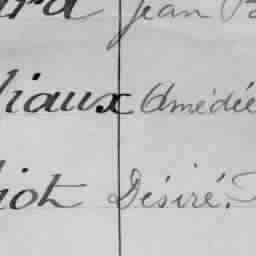 Jean
liaux Amédée
iot Désiré.